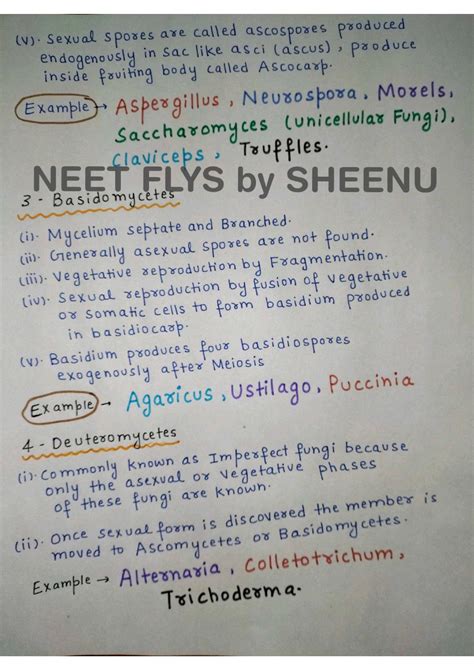 (v). Sexual spores are called ascospores produced
endogenously in sac like asci (ascus), produce
inside fruiting body called Ascocarp.
Example → Aspergillus, Neurospora, Morels,
Saccharomyces (unicellular Fungi),
Claviceps, Truffles.
NEET FLYS by SHEENU
3 - Basidomycetes
(i). Mycelium septate and Branched.
(ii). Generally asexual spores are not found.
(iii). Vegetative reproduction by Fragmentation.
(iv). Sexual reproduction by fusion of vegetative
or somatic cells to form basidium produced
in basidiocarp.
(v). Basidium produces four basidiospores
exogenously after Meiosis
Example → Agaricus, Ustilago, Puccinia
4 - Deuteromycetes
(i). Commonly known as Imperfect fungi because
only the asexual or vegetative phases
of these fungi are known.
(ii). Once sexual form is discovered the member is
moved to Ascomycetes or Basidomycetes.
Example → Alternaria, Colletotrichum,
Trichoderma.